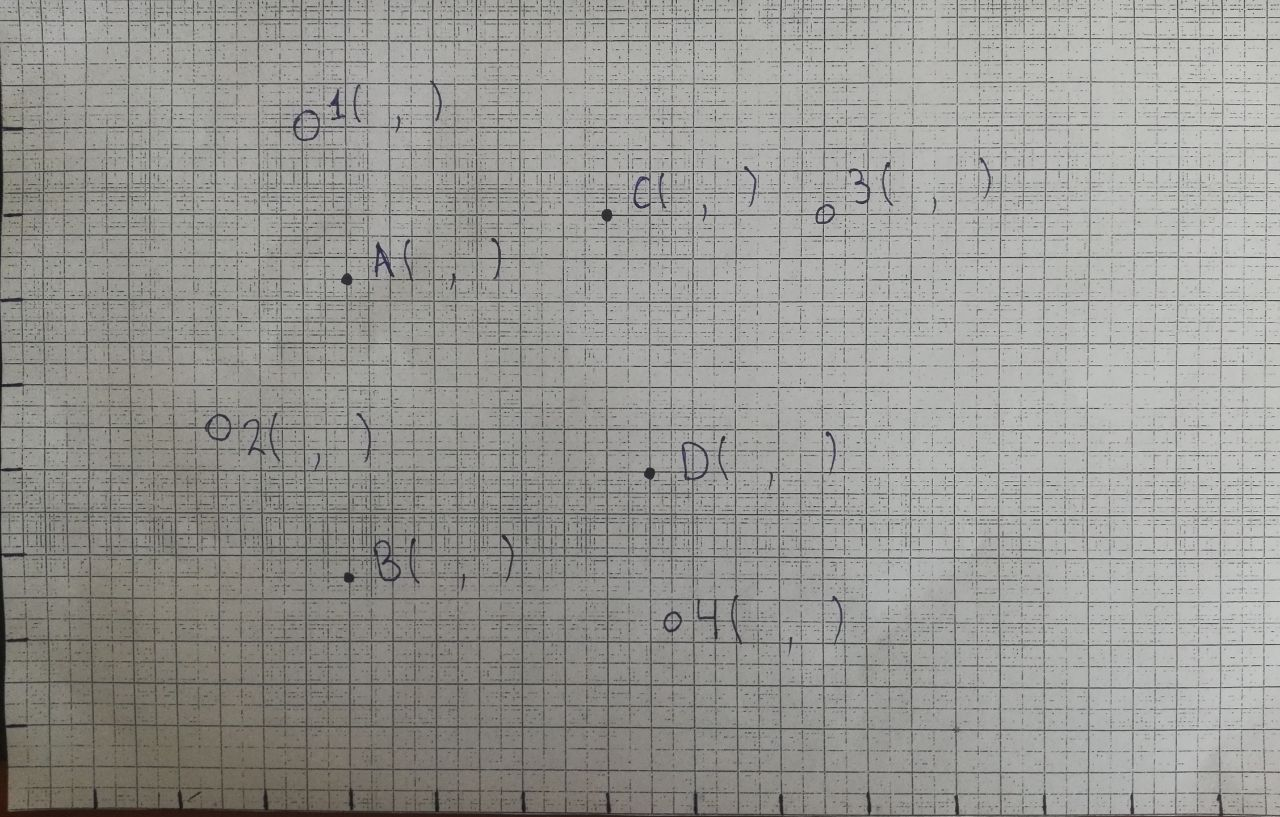 1( , )
C( , )
3( , )
A( , )
2( , )
D( , )
B( , )
4( , )